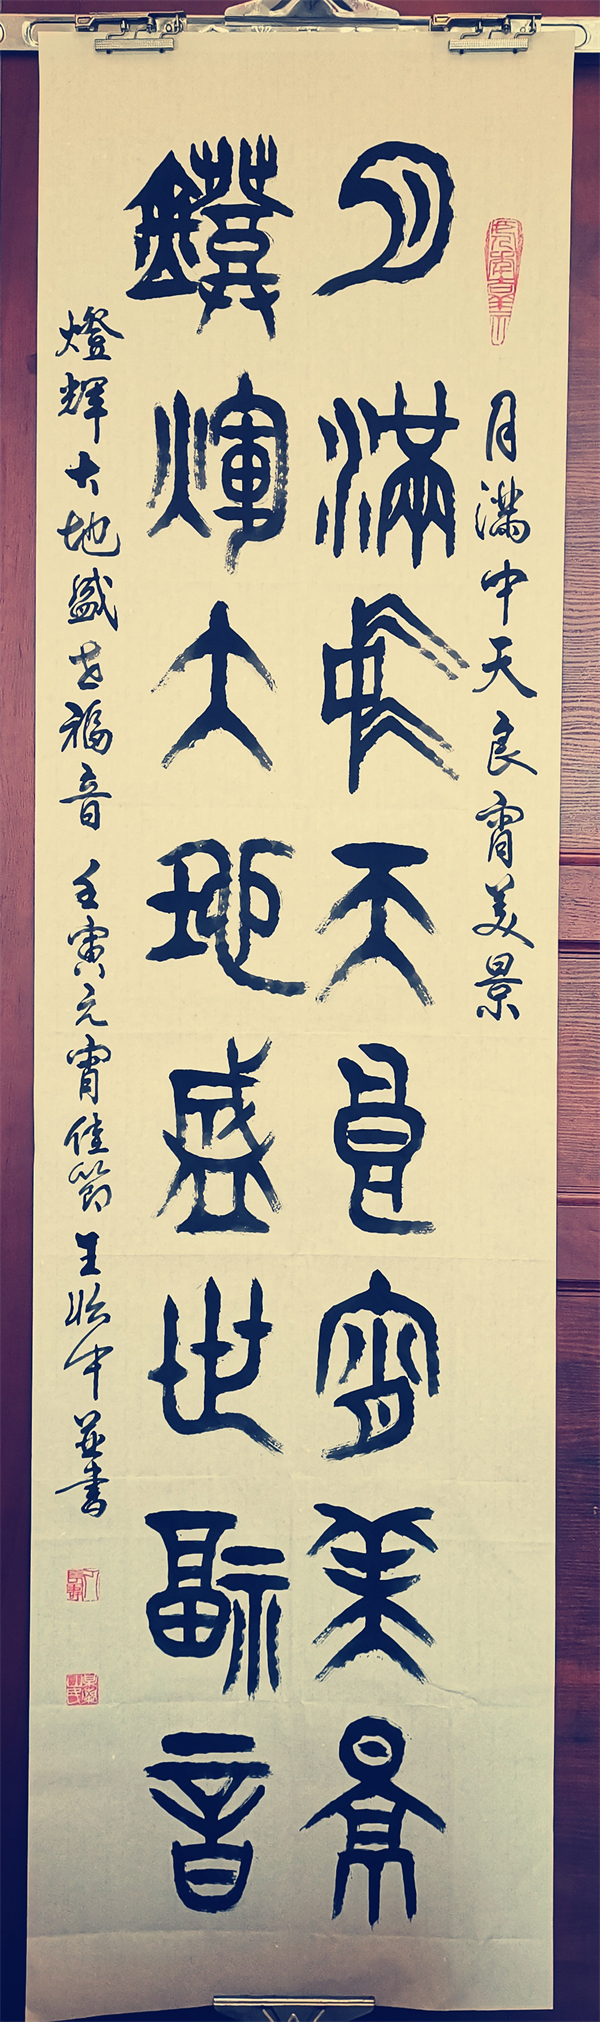 月滿中天良宵美景
月滿中天良宵美景
鐙煇大地盛世福音
燈輝大地盛世福音 壬寅元宵佳節 王中並書